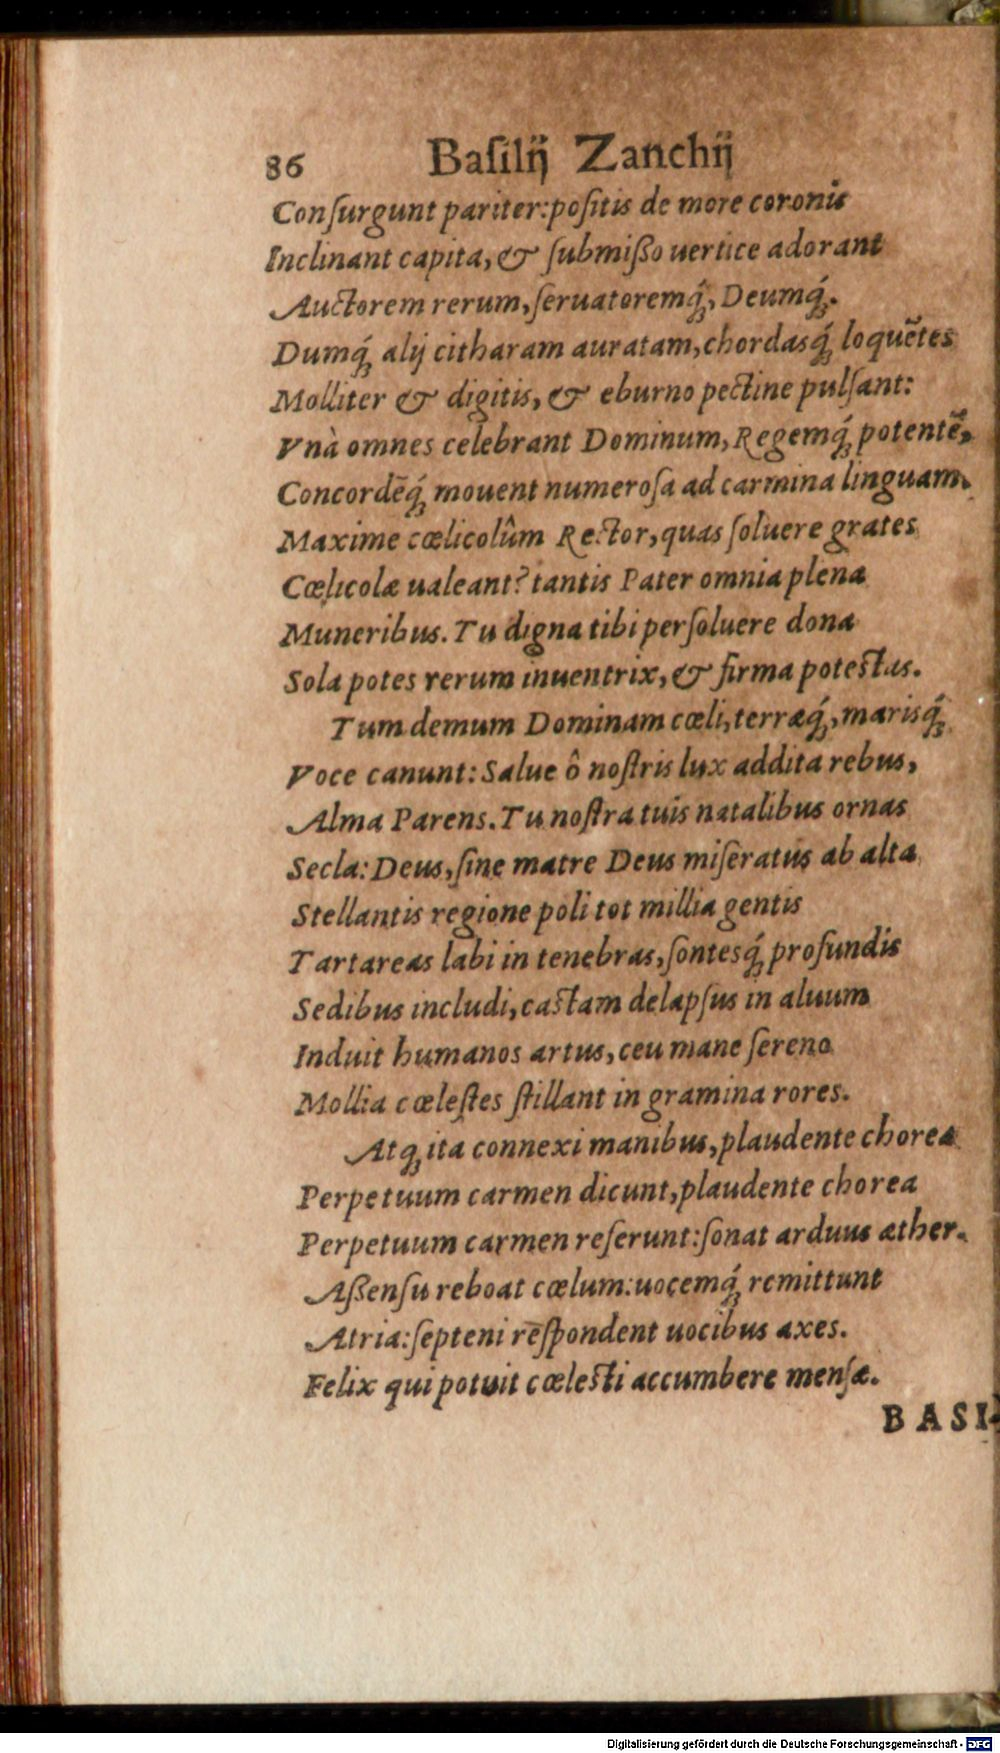 86 Baſilij Zanchij
Conſurgunt pariter:poſitis de more coronis
Inclinant capita, & ſubmißo uertice adorant
Auctorem rerum, ſeruatoremq́;, Deumq́;.
Dumq́; alij citharam auratam, chordasq́; loquẽtes
Molliter & digitis, & eburno pectine pulſant:
Vnà omnes celebrant Dominum, Regemq́; potentẽ,
Concordẽq́; mouent numeroſa ad carmina linguam.
Maxime cœlicolûm Rector, quas ſoluere grates
Cœlicolæ ualeant? tantis Pater omnia plena
Muneribus. Tu digna tibi perſoluere dona
Sola potes rerum inuentrix, & firma poteſtas.
Tum demum Dominam cœli, terræq́;, marisq́;
Voce canunt: Salue ô noſtris lux addita rebus,
Alma Parens. Tu noſtra tuis natalibus ornas
Secla: Deus, ſine matre Deus miſeratus ab alta
Stellantis regione poli tot millia gentis
Tartareas labi in tenebras, ſontesq́; profundis
Sedibus includi, caſtam delapſus in aluum
Induit humanos artus, ceu mane ſereno
Mollia cœleſtes ſtillant in gramina rores.
Atq; ita connexi manibus, plaudente chorea
Perpetuum carmen dicunt, plaudente chorea
Perpetuum carmen referunt: ſonat arduus æther.
Aßenſu reboat cœlum: uocemq́; remittunt
Atria: ſepteni reſpondent uocibus axes.
Felix qui potuit cœleſti accumbere menſæ.
BASI-
Digitalisierung gefördert durch die Deutsche Forschungsgemeinschaft - DFG